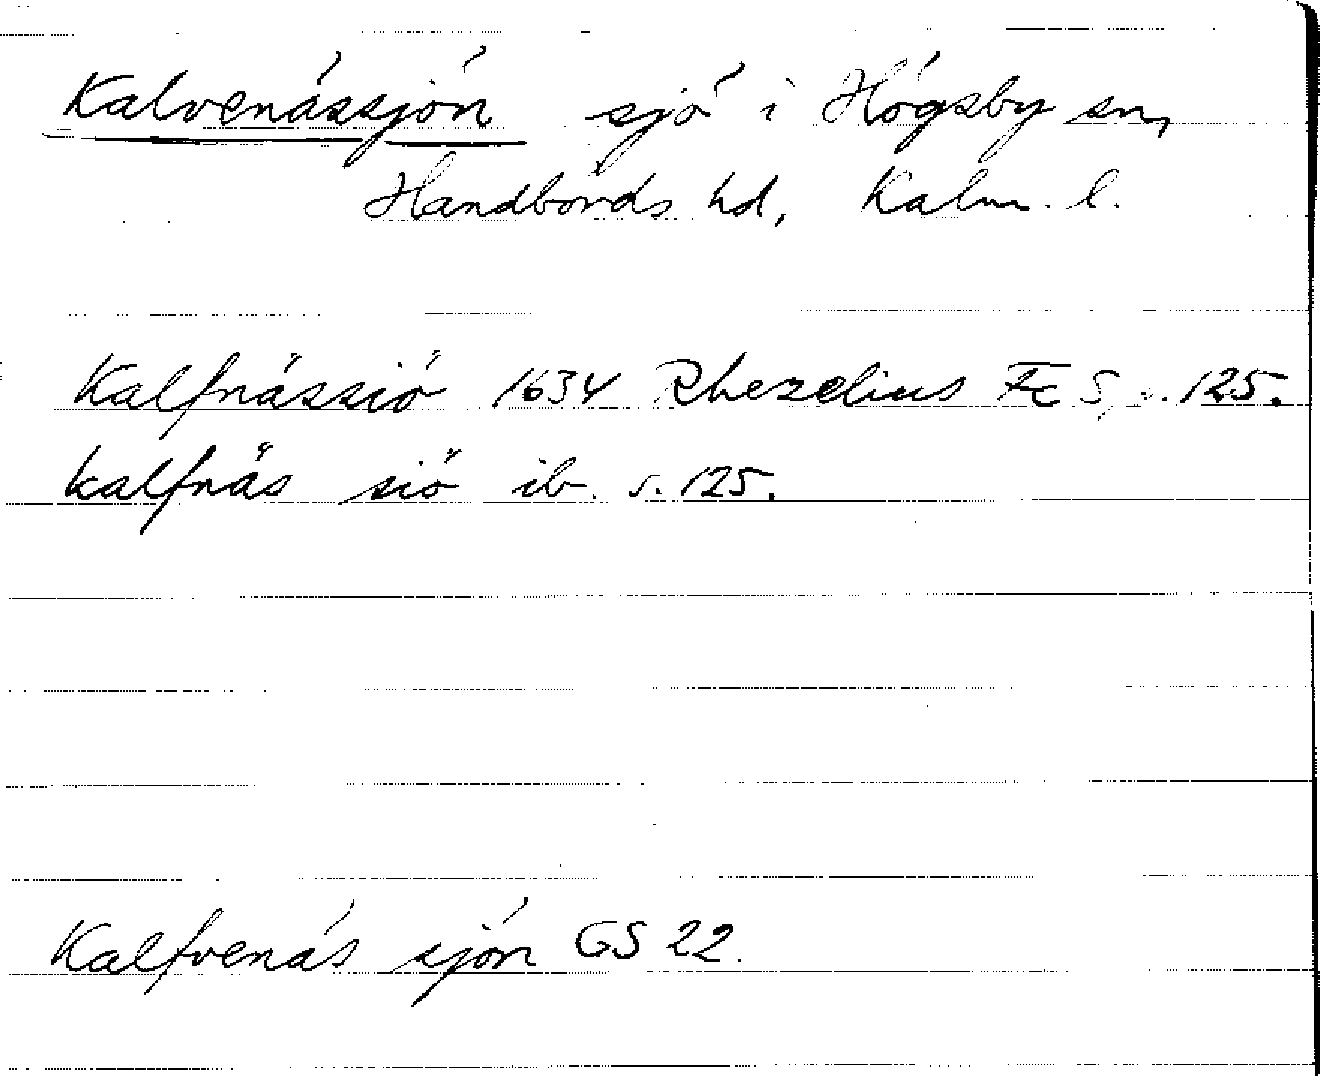 Kalvenässjön sjö i Högsby sn,
Handbörds hd, Kalm. l.
Kalfnässiö 1634 Rhezelius Fc 5, s. 125.
kalfnäs siö ib. s. 125.
Kalfvenäs sjön GS 22.